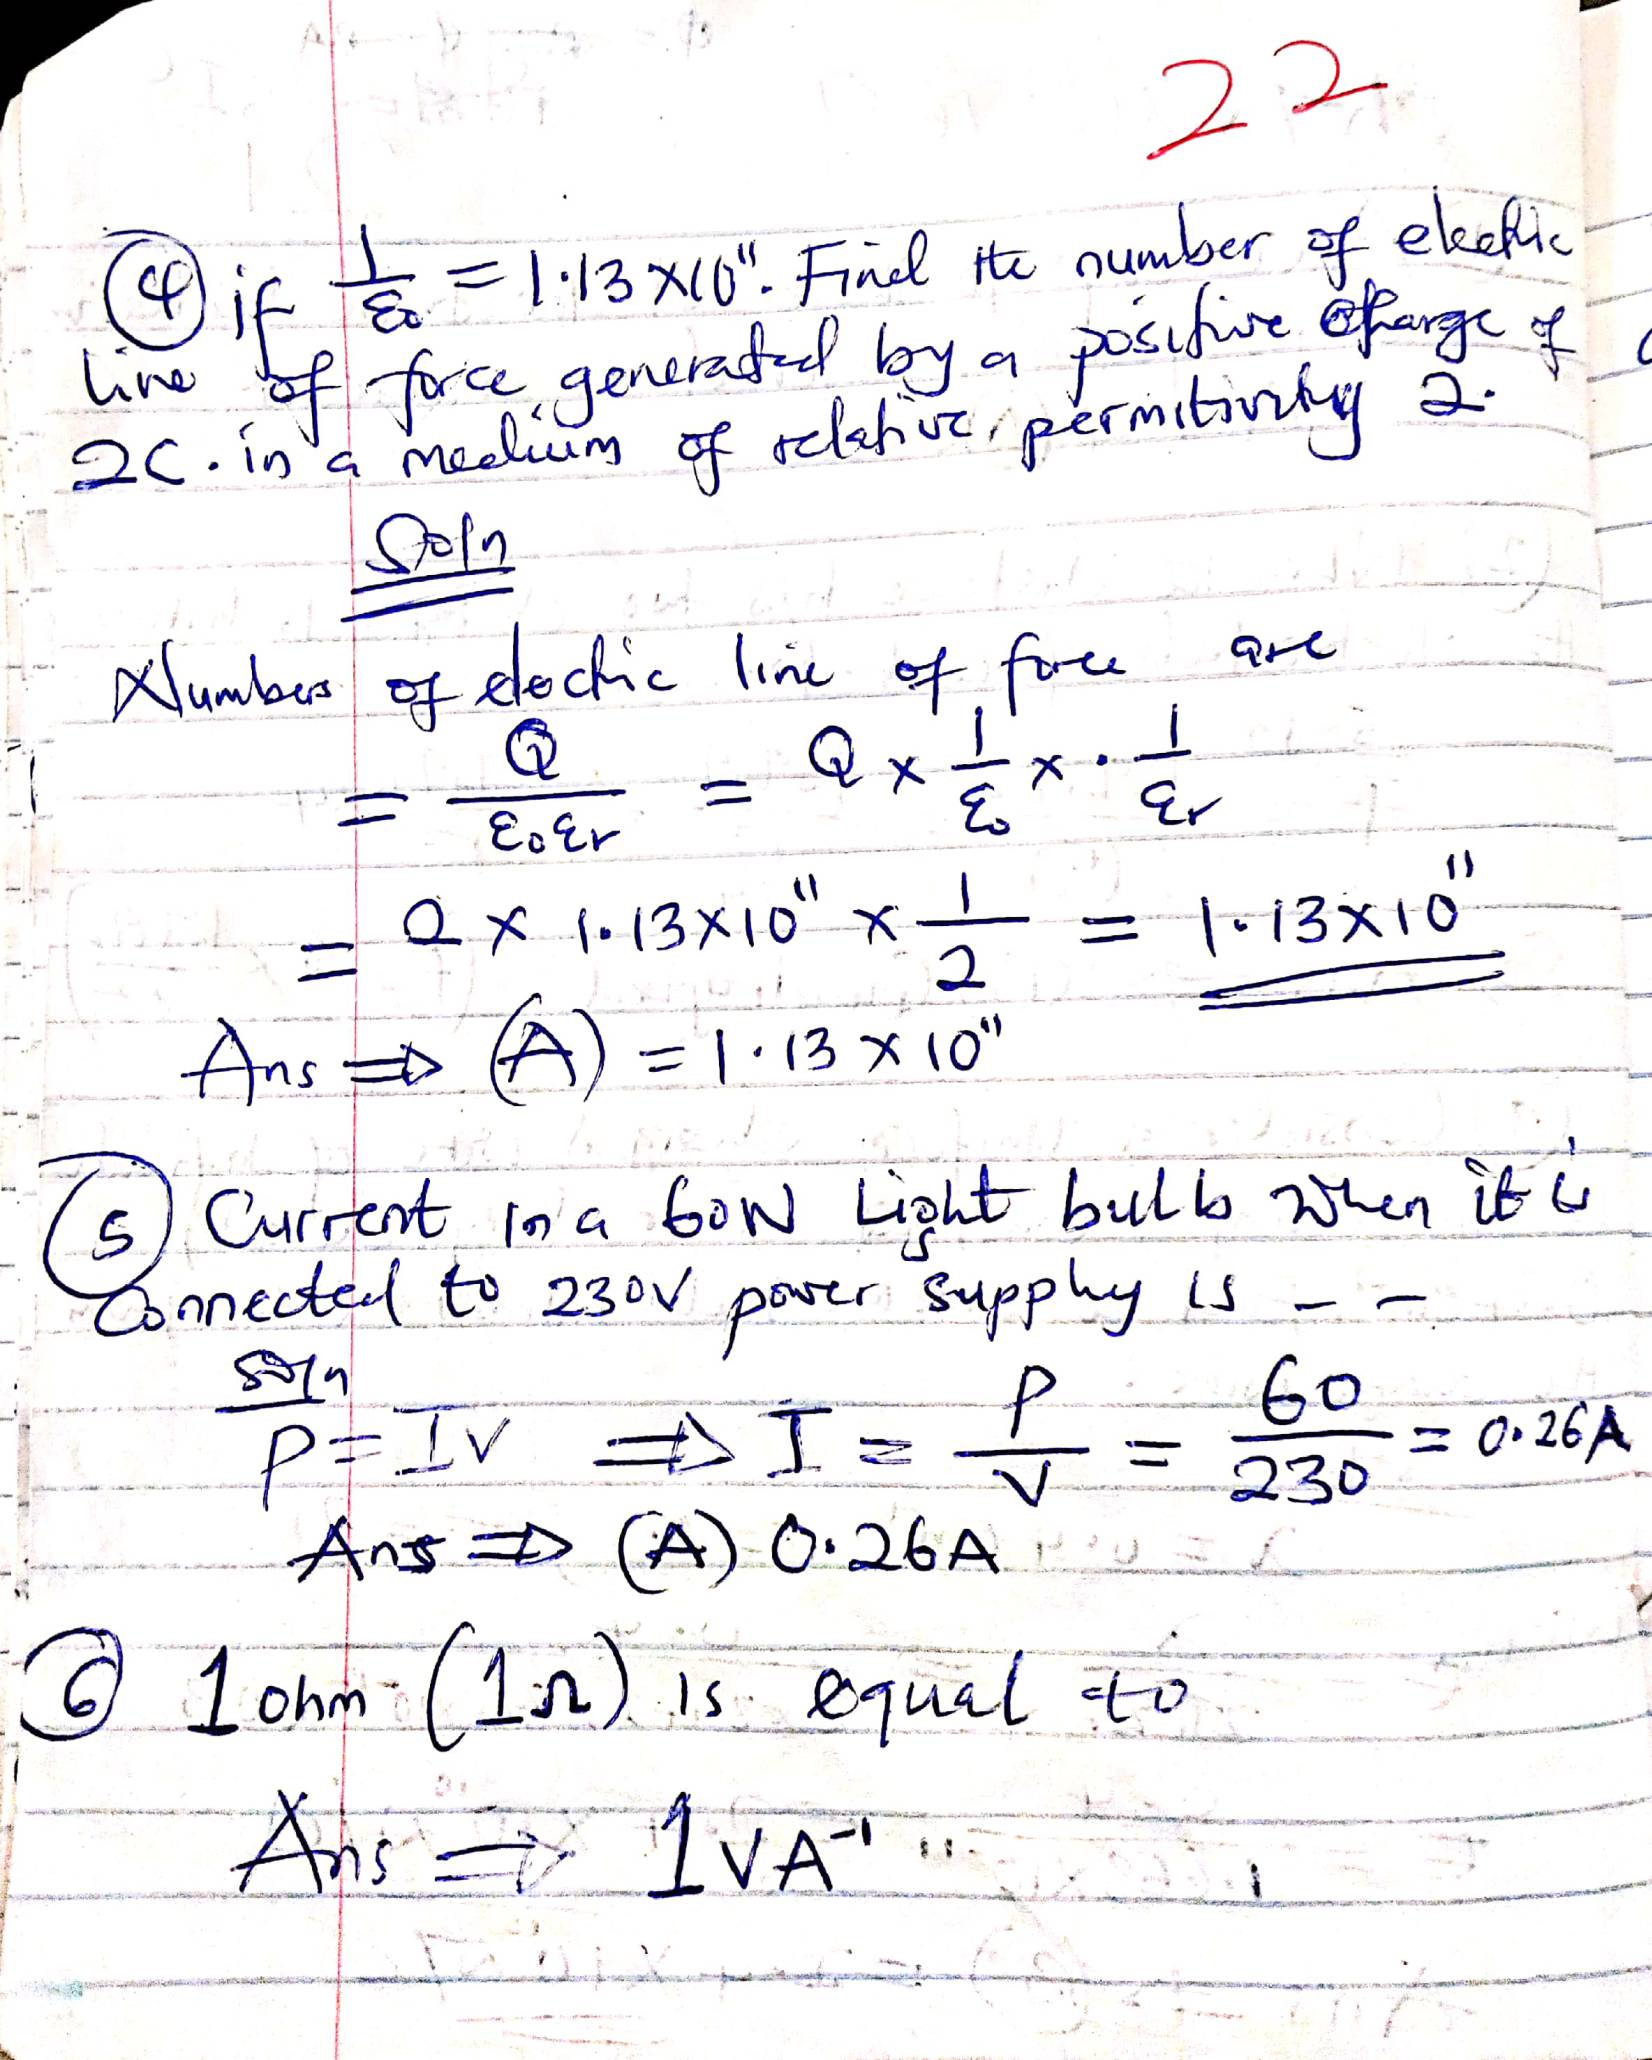 22
④ if 1/ε₀ = 1.13 x10¹¹. Find the number of electric
line of force generated by a positive charge of
2C. in a medium of relative permitivity 2.
Soln
Numbers of electric line of force are
= Q/ε₀εr = Q x 1/ε₀ x . 1/εr
= 2 x 1.13x10¹¹ x 1/2 = 1.13x10¹¹
Ans ⇒ (A) = 1.13 x 10¹¹
⑤ Current in a 60W Light bulb when it is
Connected to 230V power supply is - -
soln
P = IV ⇒ I = P/V = 60/230 = 0.26A
Ans ⇒ (A) 0.26A
⑥ 1 ohm (1Ω) is equal to
Ans ⇒ 1VA⁻¹ "